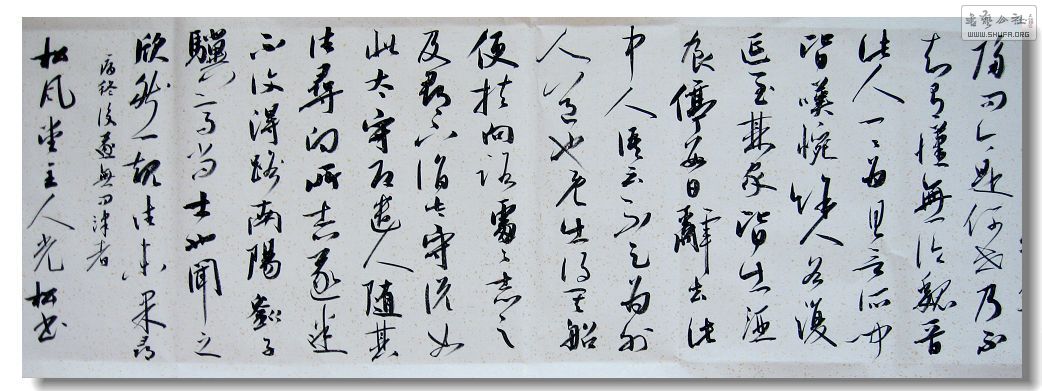 書藝公社
WWW.SHUFA.ORG
隔問今是何世乃不
知有漢無論魏晋
此人一一為具言所聞
皆嘆惋餘人各復
延至其家皆出酒
食停數日辭去此
中人語云不足為外
人道也既出得其船
便扶向路處處志之
及郡下詣太守說如
此太守即遣人隨其
往尋向所志遂迷
不復得路南陽劉子
驥高尚士也聞之
欣然規往未果尋
病終後遂無問津者
松風堂主人光松書